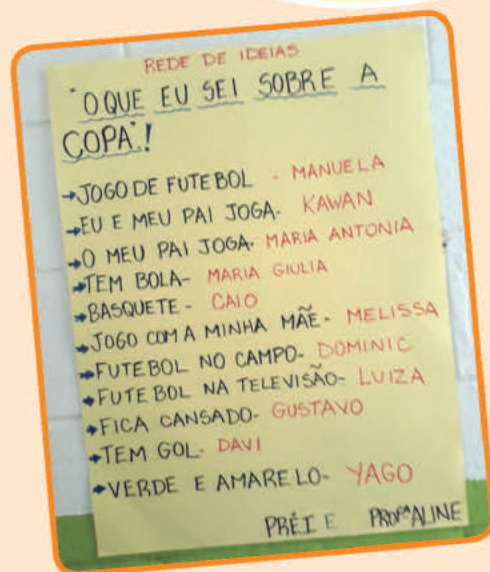 REDE DE IDEIAS
"O QUE EU SEI SOBRE A
COPA"!
→JOGO DE FUTEBOL - MANUELA
→EU E MEU PAI JOGA- KAWAN
→O MEU PAI JOGA- MARIA ANTONIA
→TEM BOLA- MARIA GIULIA
→BASQUETE - CAIO
→JOGO COM A MINHA MÃE- MELISSA
→FUTEBOL NO CAMPO- DOMINIC
→FUTEBOL NA TELEVISÃO- LUIZA
→FICA CANSADO- GUSTAVO
→TEM GOL- DAVI
→VERDE E AMARELO- YAGO
PRÉI E PROFª ALINE